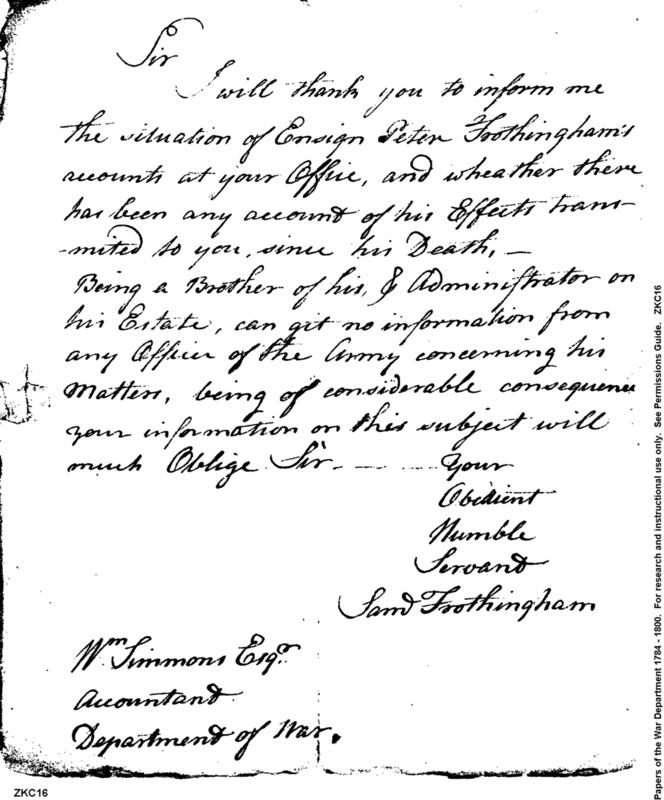 Sir
I will thank you to inform me
the situation of Ensign Peter Frothingham's
accounts at your Office, and wheather there
has been any account of his Effects trans-
-mited to you, since his Death, —
Being a Brother of his, & Administrator on
his Estate, can get no information from
any Officer of the Army concerning his
Matters, being of considerable consequence
your information on this subject will
much Oblige Sir — — Your
Obedient
Humble
Servant
Saml Frothingham
Wm Simmons Esqr
Accountant
Department of War.
ZKC16
Papers of the War Department 1784 - 1800. For research and instructional use only. See Permissions Guide. ZKC16